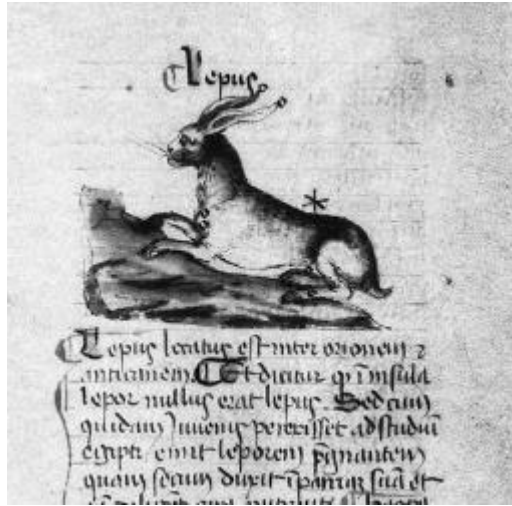 Lepus
Lepus locatus est inter orionem ⁊
anticanem Et dicitur qͥ ī insula
lepor nullus erat lepus. Sed cum
quidam iuuenis peretisset ad studiū
egipti emit leporem pͤgnantem
quam secum duxit ī patriā suā et